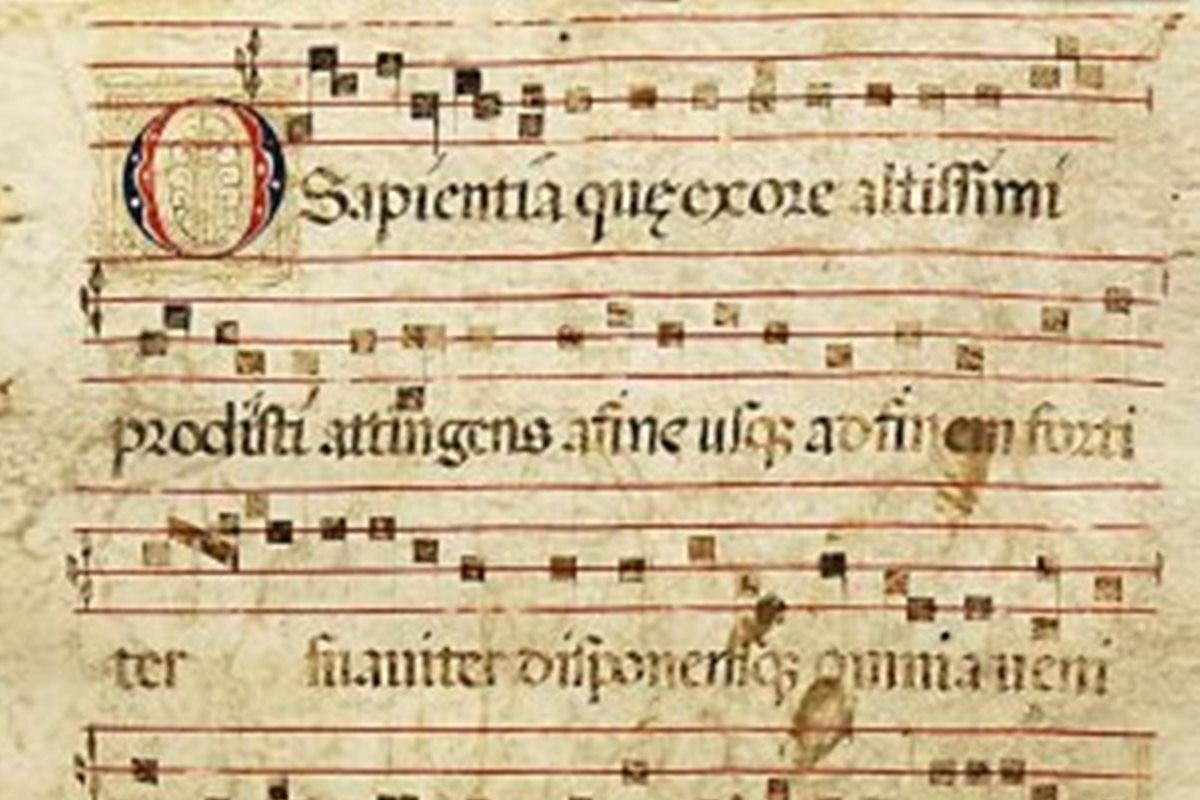 O Sapientia quę ex ore altissimi
prodisti attingens afine usqꝫ ad finem forti
ter suauiter disponensqꝫ omnia ueni